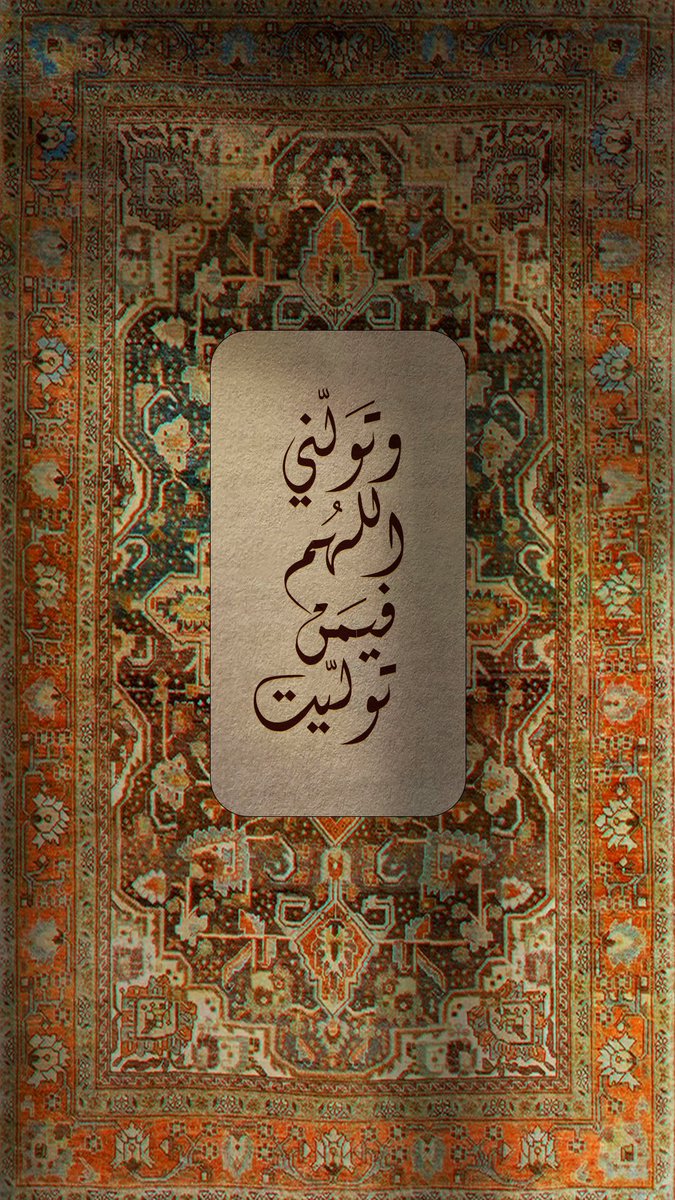 وتَوَلّني
اللهُم
فيمَنْ
تولّيت